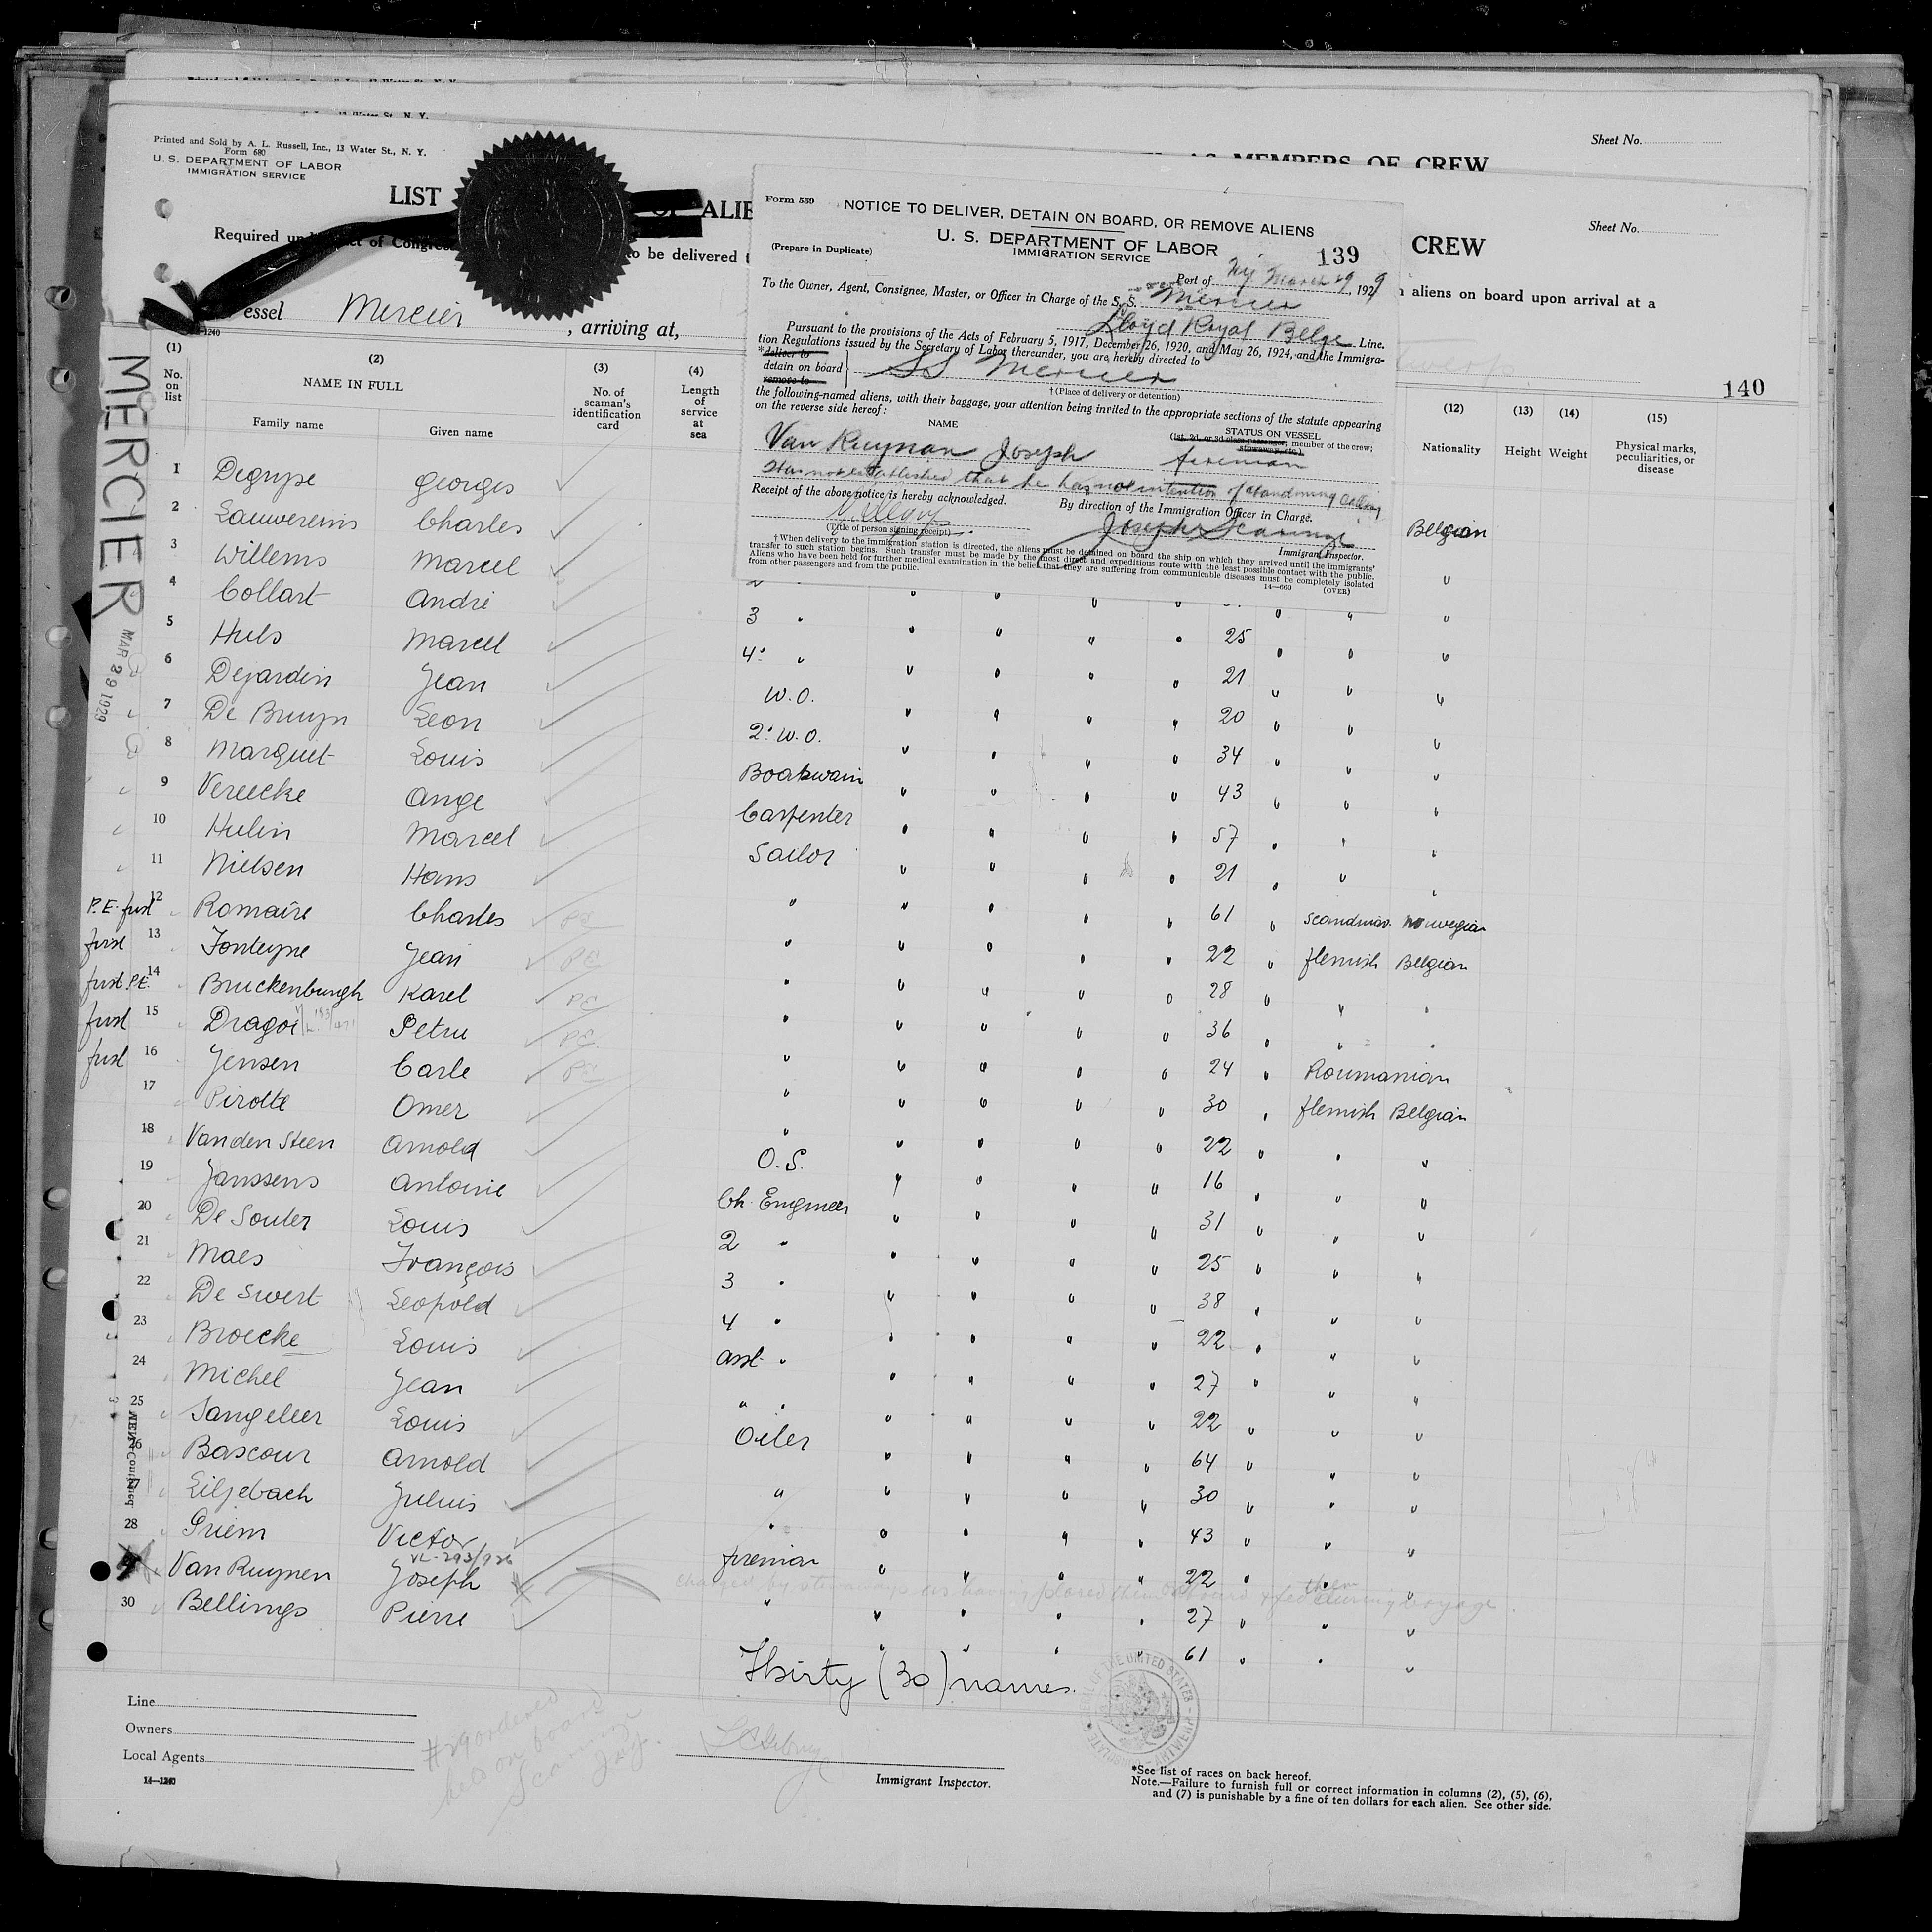 Printed and Sold by A. L. Russell, Inc., 13 Water St., N. Y.
Form 680
U. S. DEPARTMENT OF LABOR
IMMIGRATION SERVICE
AS MEMBERS OF CREW
Sheet No.
LIST OF ALIE
CREW
Sheet No.
Required un act of Congress
to be delivered t
n aliens on board upon arrival at a
essel Mercier , arriving at,
140
MERCIER
MAR 29 1929
Form 559
NOTICE TO DELIVER, DETAIN ON BOARD, OR REMOVE ALIENS
U. S. DEPARTMENT OF LABOR
IMMIGRATION SERVICE
139
(Prepare in Duplicate)
Port of NY March 29, 1929
To the Owner, Agent, Consignee, Master, or Officer in Charge of the S. S. Mercier
Lloyd Royal Belge Line.
Pursuant to the provisions of the Acts of February 5, 1917, December 26, 1920, and May 26, 1924, and the Immigra-
tion Regulations issued by the Secretary of Labor thereunder, you are hereby directed to
*deliver to
detain on board
remove to
SS Mercier
† (Place of delivery or detention)
the following-named aliens, with their baggage, your attention being invited to the appropriate sections of the statute appearing
on the reverse side hereof:
NAME
STATUS ON VESSEL
(1st, 2d, or 3d class passenger, member of the crew;
stowaway, etc.)
Van Ruynan Joseph fireman
Has not established that he has not intention of abandoning calling
Receipt of the above notice is hereby acknowledged.
By direction of the Immigration Officer in Charge.
(Title of person signing receipt)
Immigrant Inspector.
† When delivery to the immigration station is directed, the aliens must be detained on board the ship on which they arrived until the immigrants'
transfer to such station begins. Such transfer must be made by the most direct and expeditious route with the least possible contact with the public.
Aliens who have been held for further medical examination in the belief that they are suffering from communicable diseases must be completely isolated
from other passengers and from the public.
14—660 (OVER)
(1) No. on list
(2) NAME IN FULL
Family name Given name
(3) No. of seaman's identification card
(4) Length of service at sea
(12) Nationality
(13) Height
(14) Weight
(15) Physical marks, peculiarities, or disease
1 Degrype Georges
2 Lauwereins Charles Belgian
3 Willems Marcel "
4 Collart André 2 " "
5 Huls Marcel 3 " 25 "
6 Dejardin Jean 4 " 21 "
7 De Bruyn Leon W.O. 20 "
8 Marquet Louis 2 W.O. 34 "
9 Vereecke Ange Boatswain 43 "
10 Hulin Marcel Carpenter 57 "
11 Nielsen Hans Sailor 21 "
P.E. first 12 Romaire Charles PE " 61 Scandinav. Norwegian
first 13 Fonteyne Jean PE " 22 flemish Belgian
first P.E. 14 Bruckenburgh Karel PE " 28 " "
first 15 Dragoi Petru PE " 36 " "
first 16 Jensen Carle PE " 24 Roumanian
17 Pirotte Omer " 30 flemish Belgian
18 Van den Steen Arnold " 22 " "
19 Janssens Antoine O.S. 16 " "
20 De Souter Louis Ch. Engineer 31 " "
21 Maes François 2 " 25 " "
22 De Swert Leopold 3 " 38 " "
23 Broecke Louis 4 " 22 " "
24 Michel Jean asst. " 27 " "
25 Sangeleer Louis " " 22 " "
26 Bascour Arnold Oiler 64 " "
27 Liljebach Julius " 30 " "
28 Griem Victor " 43 " "
VL-293/926
Van Ruynen Joseph fireman 22 " "
charged by stowaways as having placed them aboard & fed them during voyage.
30 Bellings Pierre " 27 " "
" 61 " "
Thirty (30) names.
Line
Owners
Local Agents
14—1240
#29 ordered
held on board
Immigrant Inspector.
*See list of races on back hereof.
Note.—Failure to furnish full or correct information in columns (2), (5), (6),
and (7) is punishable by a fine of ten dollars for each alien. See other side.